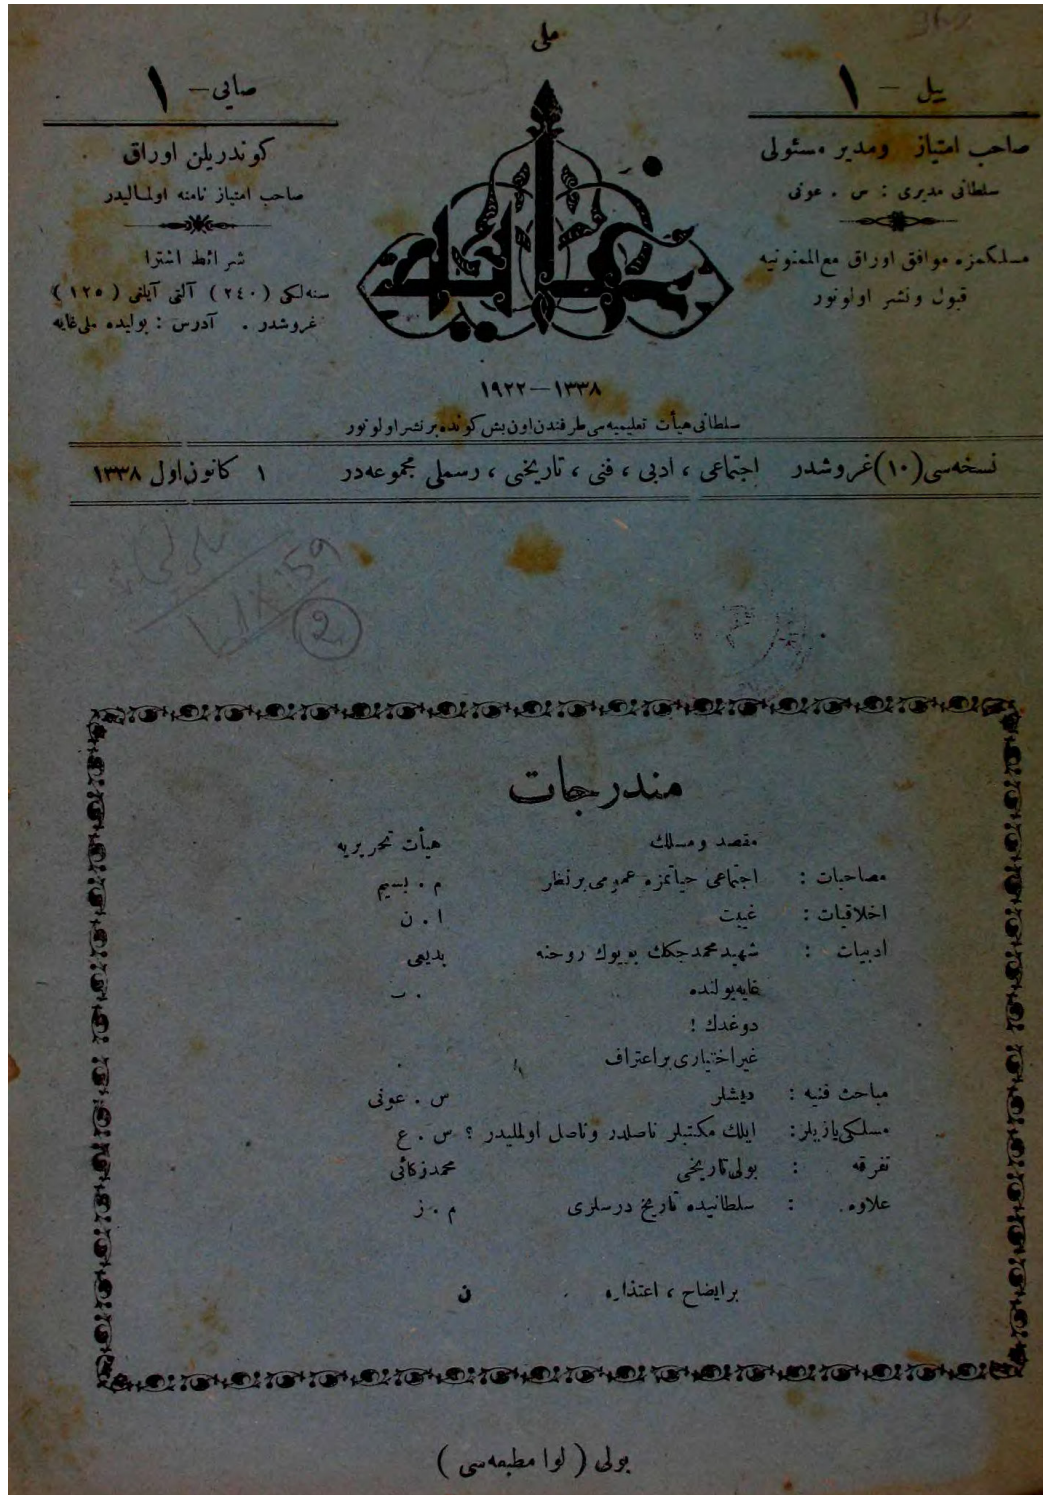 ملی
ییل – ١
صاحب امتیاز ومدیر مسئولی
سلطانی مدیری : س . عونی
مسلکمزه موافق اوراق مع الممنونیه
قبول ونشر اولونور
صایی – ١
کوندریلن اوراق
صاحب امتیاز نامنه اولمالیدر
شرائط اشترا
سنه‌لکی (٢٤٠) آلتی آیلغی (١٢٥)
غروشدر . آدرس : بولیده ملی غایه
غایه
١٣٣٨—١٩٢٢
سلطانی هیأت تعلیمیه‌سی طرفندن اون بش کونده بر نشر اولونور
نسخه‌سی (١٠) غروشدر اجتماعی ، ادبی ، فنی ، تاریخی ، رسملی مجموعه‌در ١ کانون اول ١٣٣٨
IX.59
2
مندرجات
مقصد ومسلك هیأت تحریریه
مصاحبات : اجتماعی حیاتمزه عمومی بر نظر م . بسیم
اخلاقیات : غیبت ا . ن
ادبیات : شهید محمدجكك بویوك روحنه بدیعی
غایه یولنده . ب
دوغدك !
غیر اختیاری بر اعتراف
مباحث فنیه : دیشلر س . عونی
مسلکی یازیلر : ایلك مکتبلر ناصلدر وناصل اولملیدر ؟ س . ع
تفرقه : بولی تاریخی محمد زکائی
علاوه : سلطانیده تاریخ درسلری م . ز
بر ایضاح ، اعتذار ن
بولی ( لوا مطبعه‌سی )